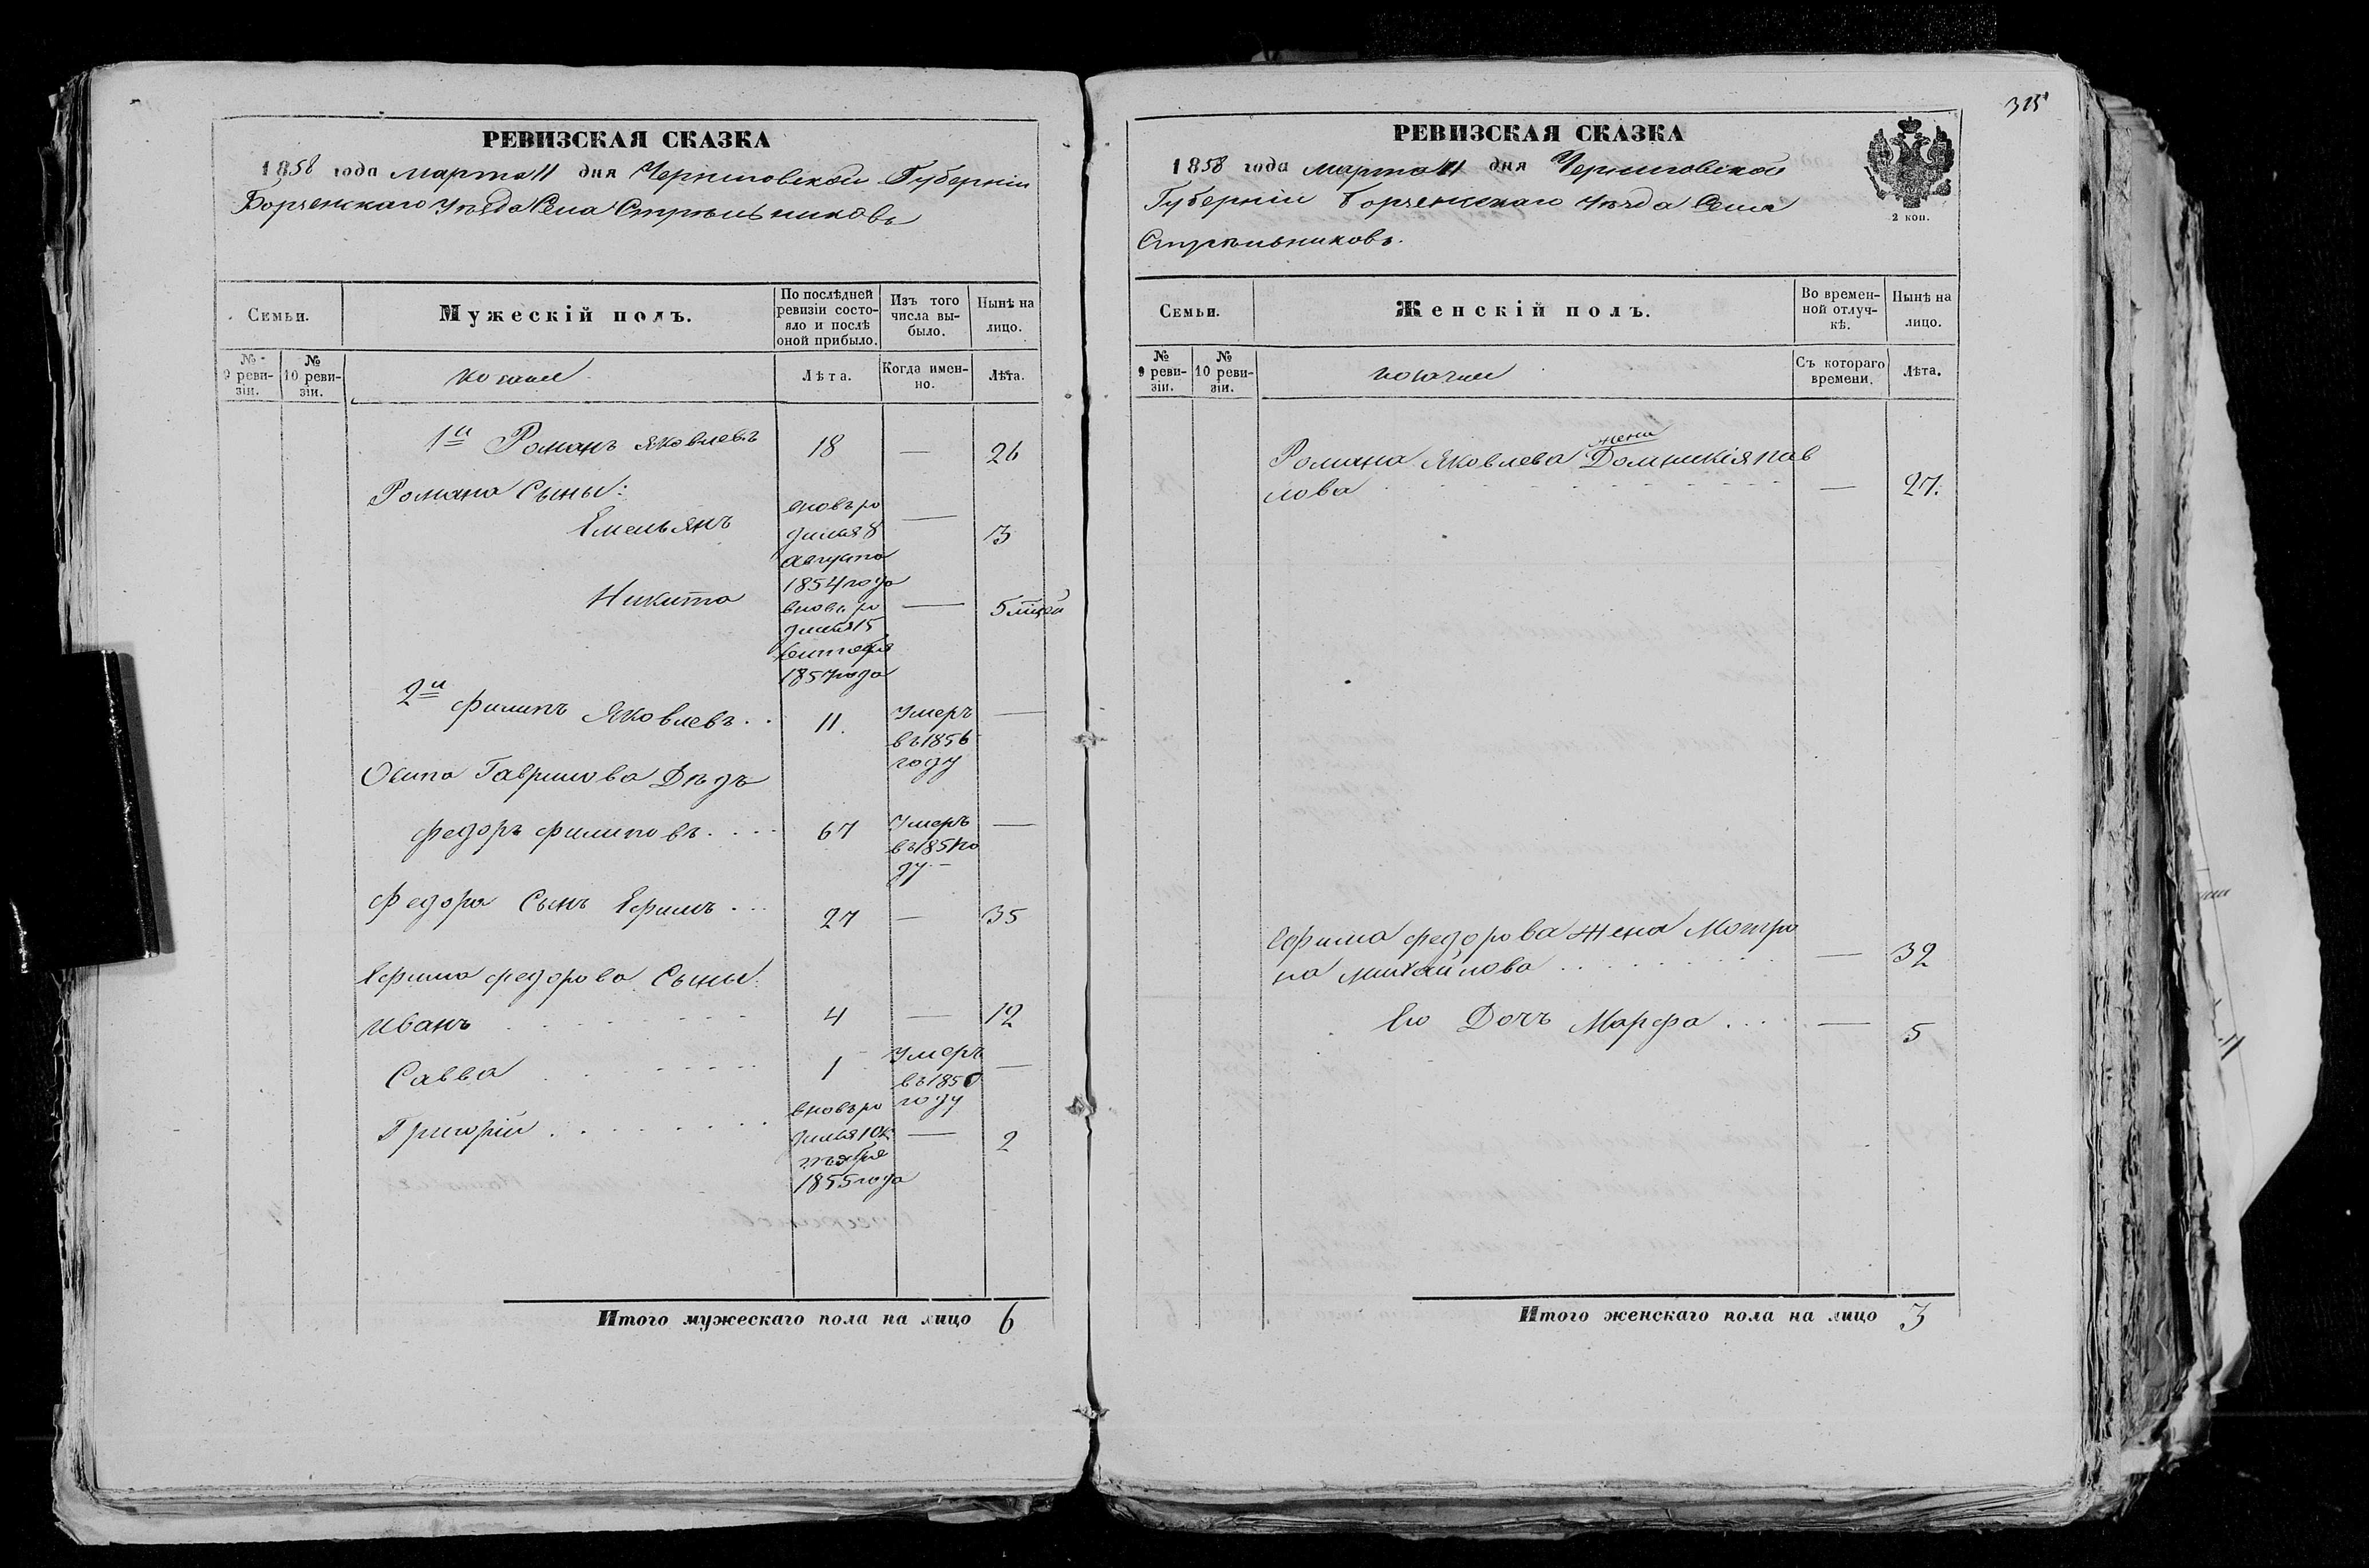 РЕВИЗСКАЯ СКАЗКА
1858 года марта 11 дня Черниговской Губерніи
Борзенскаго Уѣзда Села Стрѣльниковъ
Семьи.
Мужескій полъ.
По послѣдней ревизіи состояло и послѣ оной прибыло.
Изъ того числа выбыло.
Нынѣ на лицо.
№ 9 ревизіи.
№ 10 ревизіи.
козаки
Лѣта.
Когда именно.
Лѣта.
1й Романъ Яковлевъ 18 — 26
Романа Сыны:
Емельянъ
вновь ро
дился 8
августа
1854 года
— 3
Никита
вновь ро
дился 15
сентября
1857 года
— 5 мцей
2й Филипъ Яковлевъ . . 11.
Умеръ
въ 1856
году
—
Осипа Гаврилова Дѣдъ
Федоръ Филиповъ . . . . 67
Умеръ
въ 1851 го
ду. —
—
Федора Сынъ Ефимъ . . . 27 — 35
Ефима Федорова Сыны:
Иванъ . . . . . . . . 4 — 12
Савва . . . . . . . 1
Умеръ
въ 1850
году
—
Григорій . . . . . . . .
вновь ро
дился 1 Ок
тября
1855 года
— 2
Итого мужескаго пола на лицо 6
315
РЕВИЗСКАЯ СКАЗКА
1858 года марта 11 дня Черниговской
Губерніи Борзенскаго Уѣзда Села
Стрѣльниковъ.
2 коп.
Семьи.
Женскій полъ.
Во временной отлучкѣ.
Нынѣ на лицо.
№ 9 ревизіи.
№ 10 ревизіи.
козачки
Съ котораго времени.
Лѣта.
жена
Романа Яковлева Домникія пав
лова . . . . . . . — 27.
Ефима Федорова жена Мотро
на Михайлова . . . . . . . . — 32
Его Дочь Марфа . . . . — 5
Итого женскаго пола на лицо 3